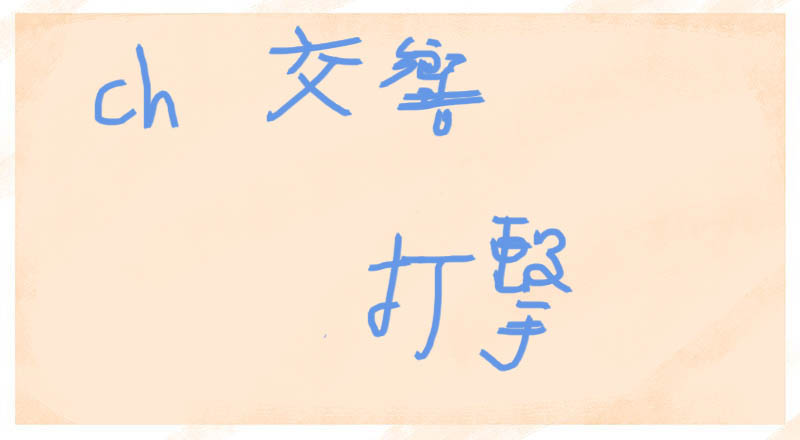 ch 交響
打擊